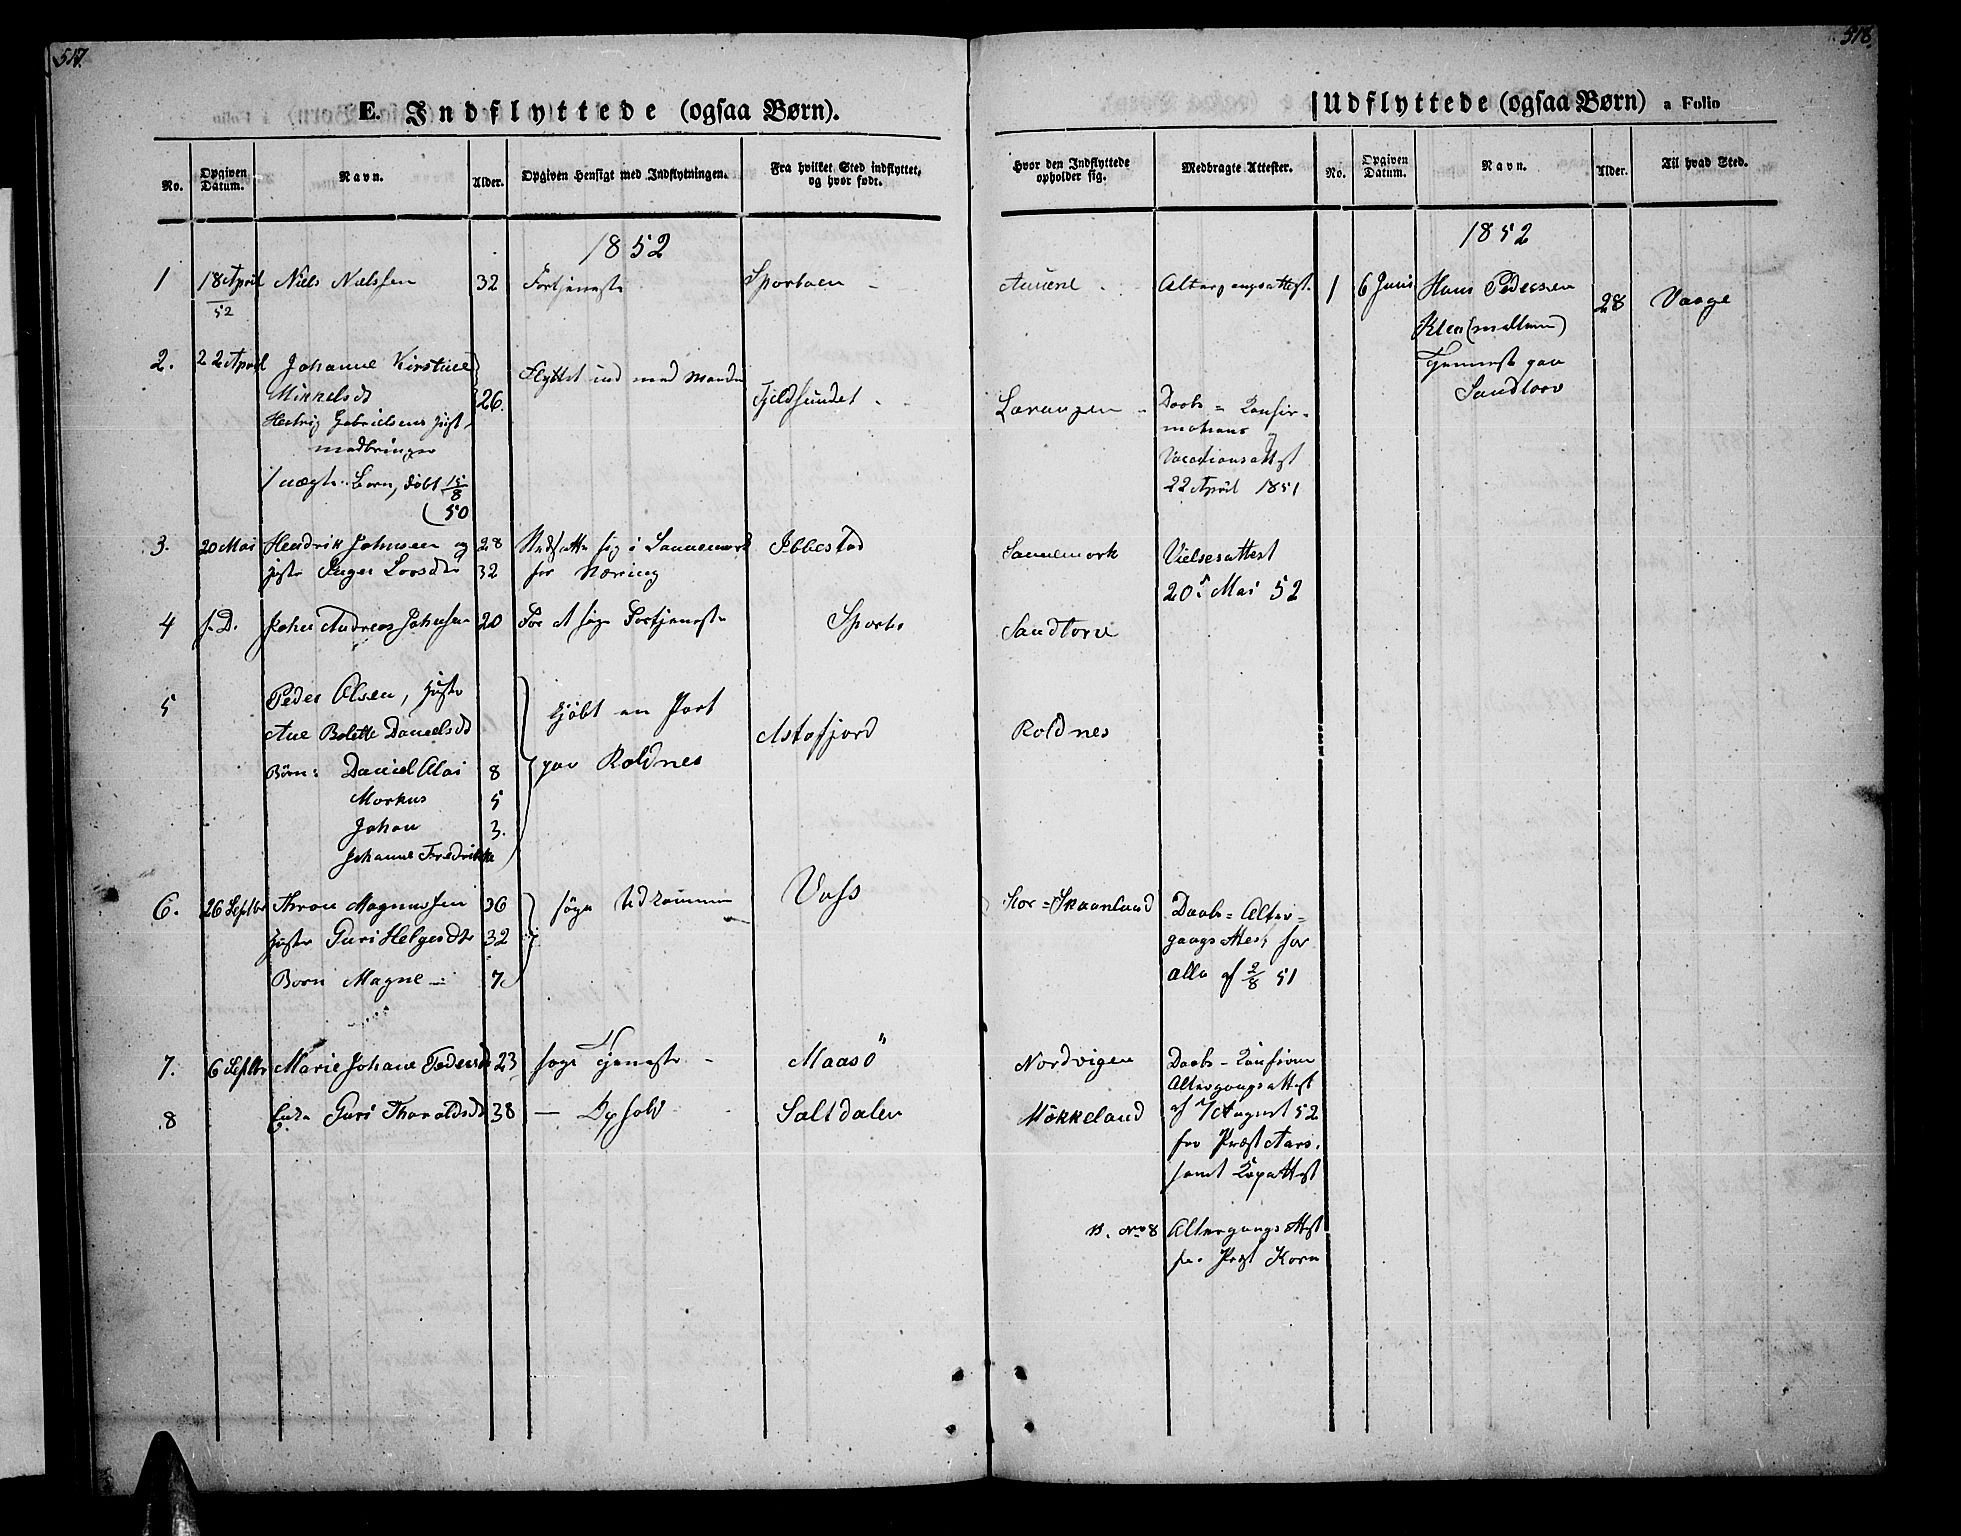 517.
E. Indflyttede (ogsaa Børn).
No.
Opgiven Datum.
Navn.
Alder.
Opgiven Hensigt med Indflytningen.
Fra hvilket Sted indflyttet, og hvor født.
1852
1 18 April 52 Niels Nielssen 32 Fortjeneste
2. 22 April Johanne Kirstine
Mikkelsd 26. Flyttet ind med Manden Fjeldsundet
Hedvig Gabrielsens
medbringer
1 uægte Barn, døbt 15/8
50
3. 20 Mai Hendrik Johnsen og 28 Nedsatte sig i Sannemark Ibbestad
Inger Larsdtr 32 for Næring
4 s. D. Johan Andreas Johnsen 20 For at søge Fortjeneste
5 Peder Olsen,
Ane Bolette Danielsd Kjøbt en Part Astafjord
Børn: Daniel Olai 8 paa Roldnes
Markus 5
Johan 3.
Johanne Fredrikke
6. 26 Septbr Magnussen 36 søge Udkomme Voss
Guri Helgesdtr 32
Barn Magne 7
7. 6 Septbr Marie Johane Pedersd 23 søge Tjeneste Maasö
8 Enke Guri Tharaldsd 38 — Ophold Saltdalen
518.
Udflyttede (ogsaa Børn) a Folio
Hvor den Indflyttede opholder sig.
Medbragte Attester.
No.
Opgiven Datum.
Navn.
Alder.
Til hvad Sted.
1852
Altergangsattest. 1 6 Juni Hans Pedersen 28 Vaage
Tjeneste paa
Sandtorv
Daabs= Konfir=
mations
Vacationsattest
22 April 1851
Sannemark Vielsesattest
20 Mai 52
Sandtorv
Roldnes
Stor=Skaanland Daabs= Alter=
gangsattest for
alle af 2/8 51
Nordvigen Daabs- Konfirm
Altergangsattest
Møkkeland af 7 August 52
fra Præst
samt Kopattest
N. No 8 Altergangsattest
fra Præst